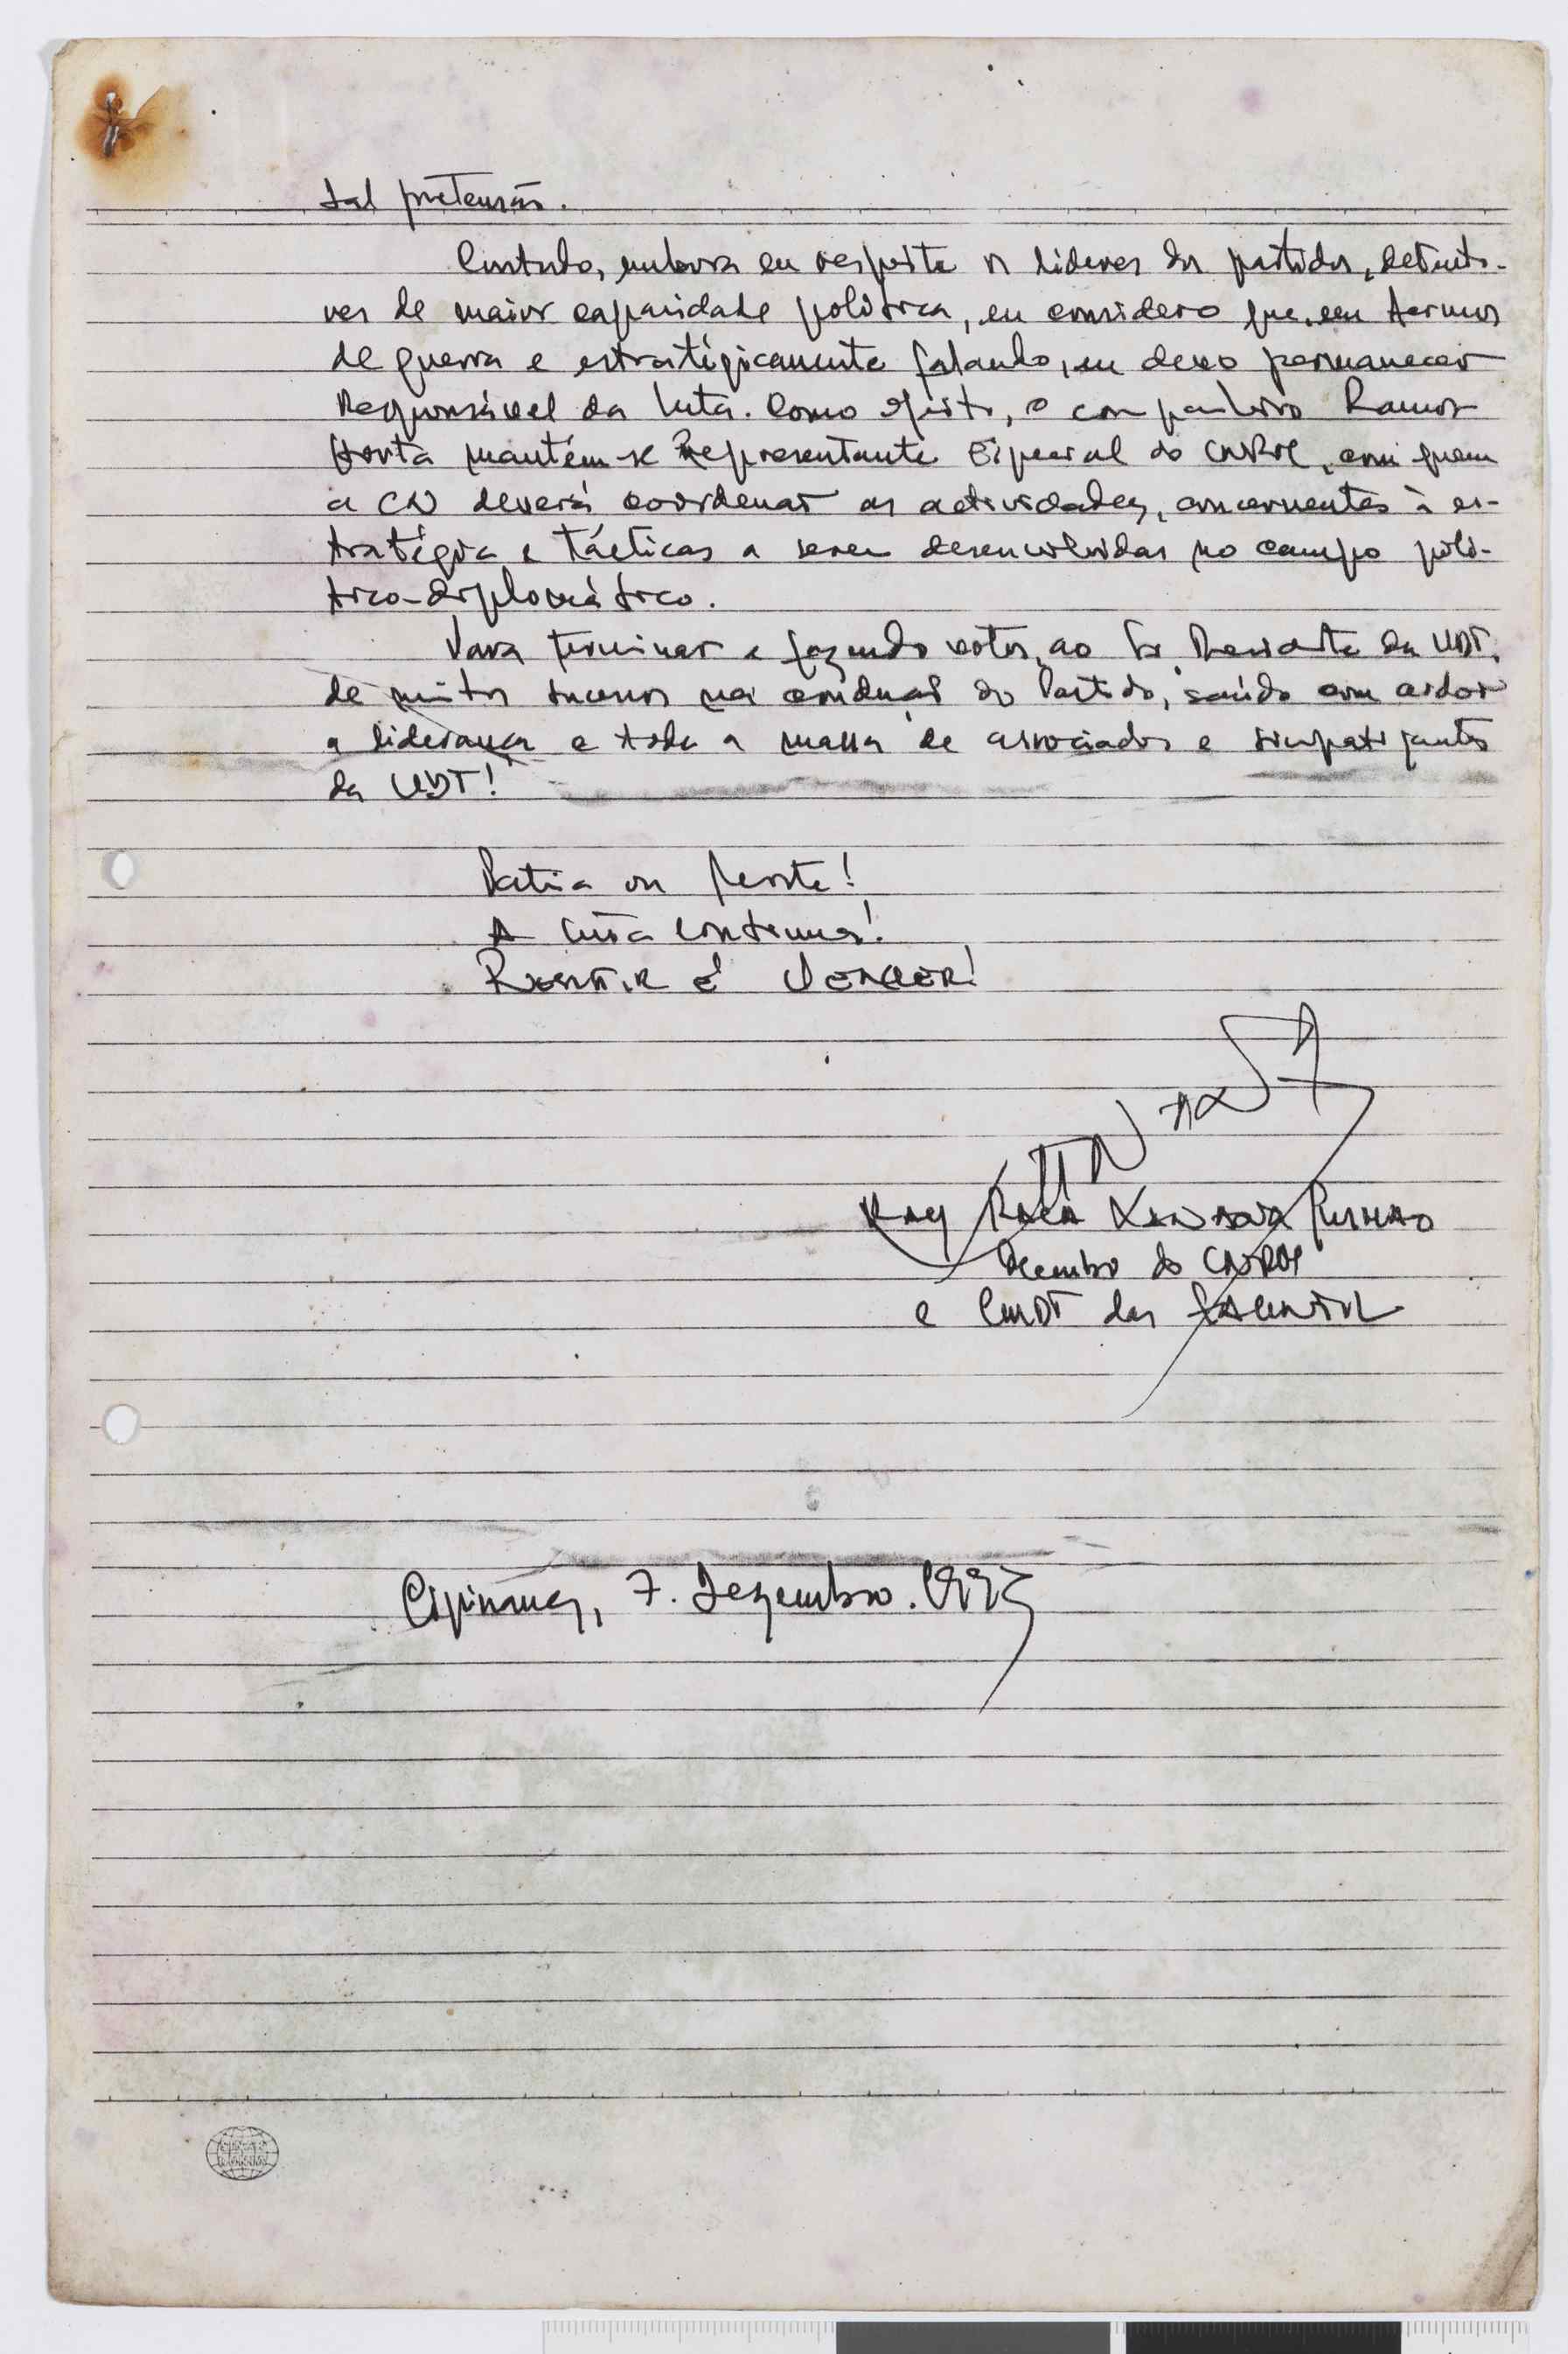 tal pretensão.
Contudo, embora eu respeite os líderes dos partidos, detento-
res de maior capacidade política, eu considero que, em termos
de guerra e estratégicamente falando, eu devo permanecer
Responsável da luta. Como efeito, o companheiro Ramos
Horta mantém-se Representante Especial do CNRM, com quem
a CN deverá coordenar as actividades, concernentes à es-
tratégia e tácticas a serem desenvolvidas no campo polí-
tico-diplomático.
Para terminar e fazendo votos, ao Sr. Presidente da UDT,
de muitos sucessos na condução do Partido, saúdo com ardor
a liderança e toda a massa de associados e simpatizantes
da UDT!
Pátria ou Morte!
A Luta Continua!
RESISTIR É VENCER!
Kay Rala Xanana Gusmão
Membro do CNRM
e CMDT das FALINTIL
Cipinang, 7. Dezembro. 1993